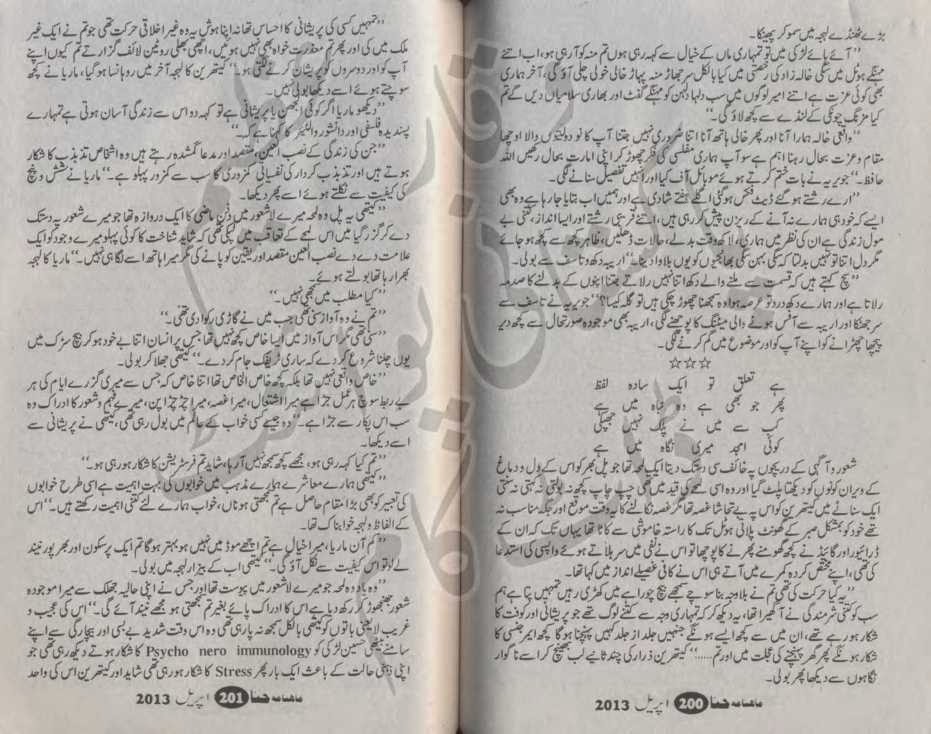 بڑے ٹھنڈے لہجہ میں سمو کر پھینکا۔
’’آئے ہائے لڑکی میں تو تمہاری ماں کے خیال سے کہہ رہی ہوں تم منہ کو آ رہی ہو، اب اتنے
مہنگے ہوٹل میں سگی خالہ زاد کی رخصتی میں کیا بالکل سر جھاڑ منہ پہاڑ خالی خولی چلی آؤ گی، آخر ہماری
بھی کوئی عزت ہے اتنے امیر لوگوں میں سب دلہا دلہن کو مہنگے گفٹ اور بھاری سلامیاں دیں گے تم
کیا مزنگ چونگی کے لنڈے سے کچھ لاؤ گی۔‘‘
’’واقعی خالہ ہمارا آنا اور پھر خالی ہاتھ آنا اتنا ضروری نہیں جتنا آپ کا نو دولتیوں والا اوچھا
مقام و عزت بحال رہنا اہم ہے سو آپ ہماری مفلسی کی فکر چھوڑ کر اپنی امارت بحال رکھیں اللہ
حافظ۔‘‘ جویریہ نے بات ختم کرتے ہوئے موبائل آف کیا اور انہیں تفصیل سنانے لگی۔
’’ارے رشتے ہو گئے ڈیٹ فکس ہو گئی اگلے ہفتے شادی ہے اور ہمیں اب بتایا جا رہا ہے وہ بھی
ایسے کہ خود ہی ہمارے نہ آنے کے ریزن پیش کر رہی ہیں، اتنے قریبی رشتے اور ایسا انداز، کتنی بے
مول زندگی ہے ان کی نظر میں ہماری، لاکھ وقت بدلے، حالات ڈھلیں، ظاہر کچھ سے کچھ ہو جائے
مگر دل اتنا تو نہیں بدلتا کہ سگی بہن سگی بھانجیوں کو یوں بلاوا دینا۔‘‘ اریبہ دکھ و تاسف سے بولی۔
’’سچ کہتے ہیں کہ قسمت سے ملنے والے دکھ اتنا نہیں رلاتے جتنا اپنوں کے بدلنے کا صدمہ
رلاتا ہے اور ہمارے دکھ درد تو عرصہ ہوا وہ سمجھنا چھوڑ چکی ہیں تو گلہ کیسا؟‘‘ جویریہ نے تاسف سے
سر جھٹکا اور اریبہ سے آفس ہونے والی میٹنگ کا پوچھنے لگی، اریبہ بھی موجودہ صورتحال سے کچھ دیر
پیچھا چھڑانے کو اپنے آپ کو اور موضوع میں گم کرنے لگی۔
☆☆☆
ہے تعلق تو ایک سادہ لفظ
پھر جو بھی ہے وہ چاہ میں ہے
کب سے میں نے پلک نہیں جھپکی
کوئی امجد میری نگاہ میں ہے
شعور و آگہی کے دریچوں پہ خائف سی دستک دیتا ایک لمحہ تھا جو پل بھر کو اس کے دل و دماغ
کے ویران کونوں کو دیکھتا پلٹ گیا اور وہ اسی لمحے کی قید میں تھی چپ چاپ کچھ نہ بولتی نہ ہنستی نہ سنتی
ایک سناٹے میں کیتھرین کو اس پہ بے تحاشا غصہ تھا مگر غصہ نکالنے کا یہ وقت موقع اور جگہ مناسب نہ
تھے خود کو بمشکل صبر کے گھونٹ پلاتی ہوٹل تک کا راستہ خاموشی سے کاٹا تھا یہاں تک کہ ان کے
ڈرائیور اور گائیڈ نے کچھ گھومنے پھرنے کا پوچھا تو اس نے نفی میں سر ہلاتے ہوئے واپسی کی استدعا
کی تھی، اپنے مختص کردہ کمرے میں آتے ہی اس نے کافی غصیلے انداز میں کہا تھا۔
’’یہ کیا حرکت کی تھی تم نے بلاوجہ بنا سوچے سمجھے بیچ چوراہے میں کھڑی رہیں تمہیں پتا ہے ہم
سب کو کتنی شرمندگی نے آ گھیرا تھا، یہ دیکھ کر کہ تمہاری وجہ سے کتنے لوگ تھے جو پریشانی اور کوفت کا
شکار ہو رہے تھے، ان میں سے کچھ ایسے ہونگے جنہیں جلد از جلد کہیں پہنچنا ہو گا کچھ ایمرجنسی کا
شکار ہونگے پھر گھر پہنچنے کی عجلت میں اور تم......‘‘ کیتھرین ذرا رکی چند ثانیے لب بھینچ کر اسے ناگوار
نگاہوں سے دیکھا پھر بولی۔
ماہنامہ حنا 200 اپریل 2013
’’تمہیں کسی کی پریشانی کا احساس تھا نہ اپنا ہوش یہ وہ غیر اخلاقی حرکت تھی جو تم نے ایک غیر
ملک میں کی اور پھر تم معذرت خواہ بھی نہیں ہوئیں، اچھی بھلی روٹین لائف گزارتے تم کیوں اپنے
آپ کو اور دوسروں کو پریشان کرنے لگتی ہو۔‘‘ کیتھرین کا لہجہ آخر میں روہانسا ہو گیا، ماریا نے کچھ
سوچتے ہوئے اسے دیکھا بولی نہیں۔
’’دیکھو ماریا اگر کوئی الجھن یا پریشانی ہے تو کہہ دو اس سے زندگی آسان ہوتی ہے تمہارے
پسندیدہ فلسفی اور دانشور والٹیئر کا کہنا ہے کہ۔‘‘
’’جن کی زندگی کے نصب العین، مقصد اور مدعا گمشدہ رہتے ہیں وہ اشخاص تذبذب کا شکار
ہوتے ہیں اور تذبذب کردار کی نفسیاتی کمزوری کا سب سے کمزور پہلو ہے۔‘‘ ماریا نے شش و پنج
کی کیفیت سے نکلتے ہوئے اسے پھر دیکھا۔
’’کیتھی یہ پل وہ لمحہ میرے لاشعور میں دفن ماضی کا ایک دروازہ تھا جو میرے شعور پہ دستک
دے کر گزر گیا میں اس لمحے کے تعاقب میں لپکی تھی کہ شاید شناخت کا کوئی پہلو میرے وجود کو ایک
علامت دے دے نصب العین مقصد اور یقین کو پانے کی مگر میرا ہاتھ اسے لگا ہی نہیں۔‘‘ ماریا کا لہجہ
بھرا رہا تھا بولتے ہوئے۔
’’کیا مطلب میں سمجھی نہیں۔‘‘
’’تم نے وہ آواز سنی تھی جب میں نے گاڑی رکوا دی تھی۔‘‘
’’سنی تھی مگر اس آواز میں ایسا خاص کچھ نہیں تھا جس پر انسان اتنا بے خود ہو کر بیچ سڑک میں
یوں چلنا شروع کر دے کہ ساری ٹریفک جام کر دے۔‘‘ کیتھی جھلا کر بولی۔
’’خاص واقعی نہیں تھا بلکہ کچھ خاص الخاص تھا اتنا خاص کہ جس سے میری گزرے ایام کی ہر
بے ربط سوچ ہر عمل جڑا ہے میرا اشتعال، میرا غصہ، میرا چڑچڑا پن، میرے فہم و شعور کا ادراک وہ
سب اس پکار سے جڑا ہے۔‘‘ وہ جیسے کسی خواب کے عالم میں بول رہی تھی، کیتھی نے پریشانی سے
اسے دیکھا۔
’’تم کیا کہہ رہی ہو، مجھے کچھ سمجھ نہیں آ رہا، شاید تم فرسٹریشن کا شکار ہو رہی ہو۔‘‘
’’کیتھی ہمارے معاشرے ہمارے مذہب میں خوابوں کی بہت اہمیت ہے اسی طرح خوابوں
کی تعبیر کو بھی بڑا مقام حاصل ہے تم سمجھتی ہو ناں، خواب ہمارے لئے کتنی اہمیت رکھتے ہیں۔‘‘ اس
کے الفاظ و لہجہ خوابناک تھا۔
’’کم آن ماریا، میرا خیال ہے تم اچھے موڈ میں نہیں ہو بہتر ہو گا تم ایک پرسکون اور بھرپور نیند
لے لو تو اس کیفیت سے نکل آؤ گی۔‘‘ کیتھی اب کے بیزار لہجہ میں بولی۔
’’وہ یاد وہ لمحہ جو میرے لاشعور میں پیوست تھا اور جس نے اپنی حالیہ جھلک سے میرا موجودہ
شعور جھنجھوڑ کر رکھ دیا ہے اس کا ادراک پائے بغیر تم سمجھتی ہو مجھے نیند آئے گی۔‘‘ اس کی عجیب و
غریب لایعنی باتوں کو کیتھی بالکل سمجھ نہ پا رہی تھی وہ اس وقت شدید بے بسی اور بیچارگی سے اپنے
سامنے بیٹھی حسین لڑکی کو Psycho nero immunology کا شکار ہوتے دیکھ رہی تھی جو
اپنی ذہنی حالت کے باعث ایک بار پھر Stress کا شکار ہو رہی تھی شاید اور کیتھرین اس کی واحد
ماہنامہ حنا 201 اپریل 2013